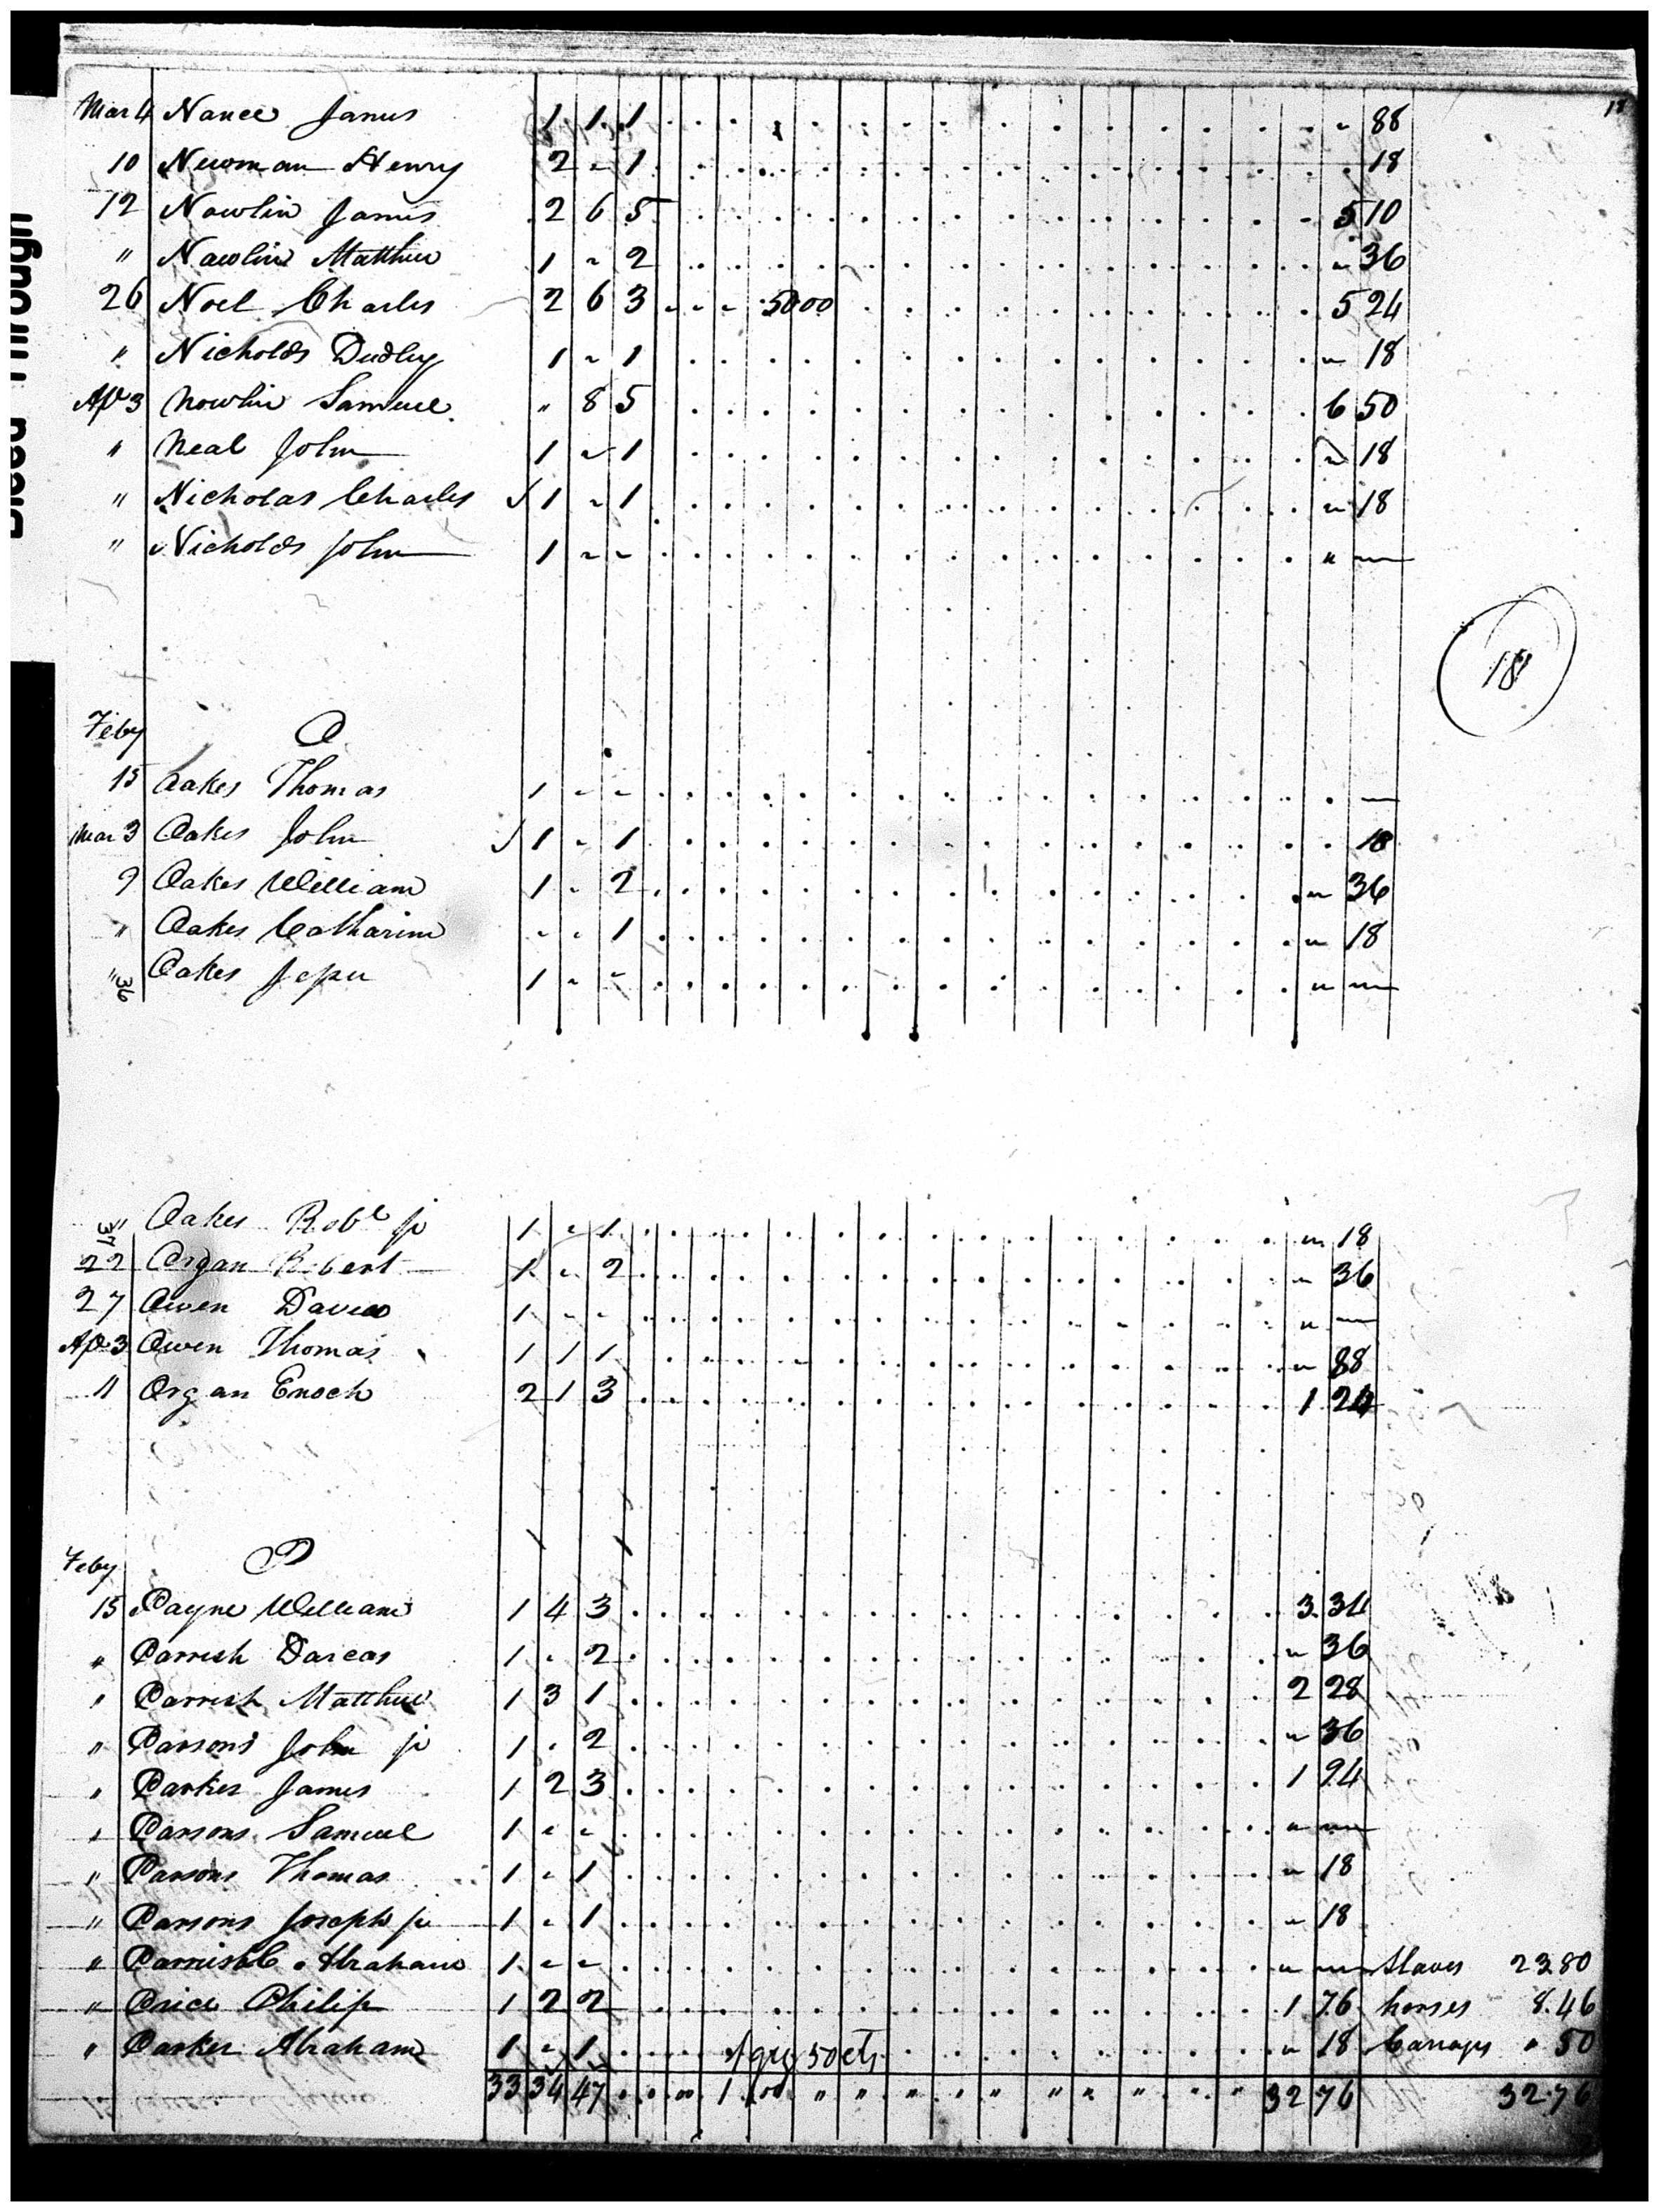 18
Mar 4 Nance James 1 1 1 " 88
10 Newman Henry 2 " 1 18
12 Nowlin James 2 6 5 5 10
" Nowlin Matthew 1 " 2 " 36
26 Noel Charles 2 6 3 5000 5 24
" Nicholds Dudley 1 " 1 " 18
Ap 3 Nowlin Samuel " 8 5 6 50
" Neal John 1 " 1 " 18
" Nicholas Charles 1 " 1 " 18
" Nicholds John 1 " " " —
18
Feby O
15 Oakes Thomas 1 " " —
Mar 3 Oakes John 1 " 1 18
9 Oakes William 1 " 2 " 36
" Oakes Catharine " " 1 " 18
" Oakes Jesse 1 " " " —
36
" Oakes Robt jr 1 " 1 " 18
37
22 Organ Robert 1 " 2 " 36
27 Owen David 1 " " " —
Ap 3 Owen Thomas 1 1 1 " 88
11 Organ Enoch 2 1 3 1 24
Feby P
15 Payne William 1 4 3 3 34
" Parrish Darcas 1 " 2 " 36
" Parrish Matthew 1 3 1 2 28
" Parsons John jr 1 " 2 " 36
" Parker James 1 2 3 1 94
" Parsons Samuel 1 " " " —
" Parsons Thomas 1 " 1 " 18
" Parsons Joseph jr 1 " 1 " 18
" Parrish Abraham 1 " " " — Slaves 23 80
" Price Philip 1 2 2 1 76 horses 8.46
" Parker Abraham 1 " 1 1 gig 50 cts " 18 Carriages " 50
33 34 47 1 00 " " " " " " " " " 32 76 32.76